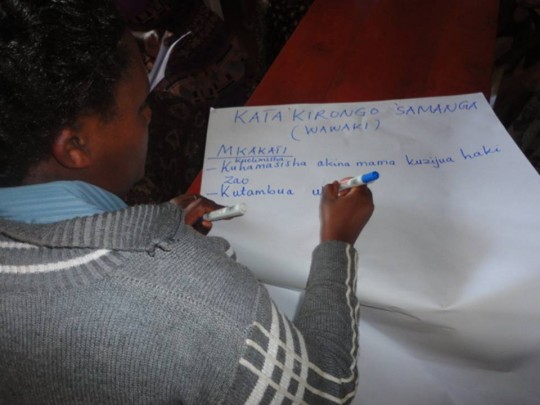 KATA KIRONGO SAMANGA
(WAWAKI)
MKAKATI
Kuelimisha
- Kuhamasisha akina mama kuzijua haki
zao
- Kutambua u